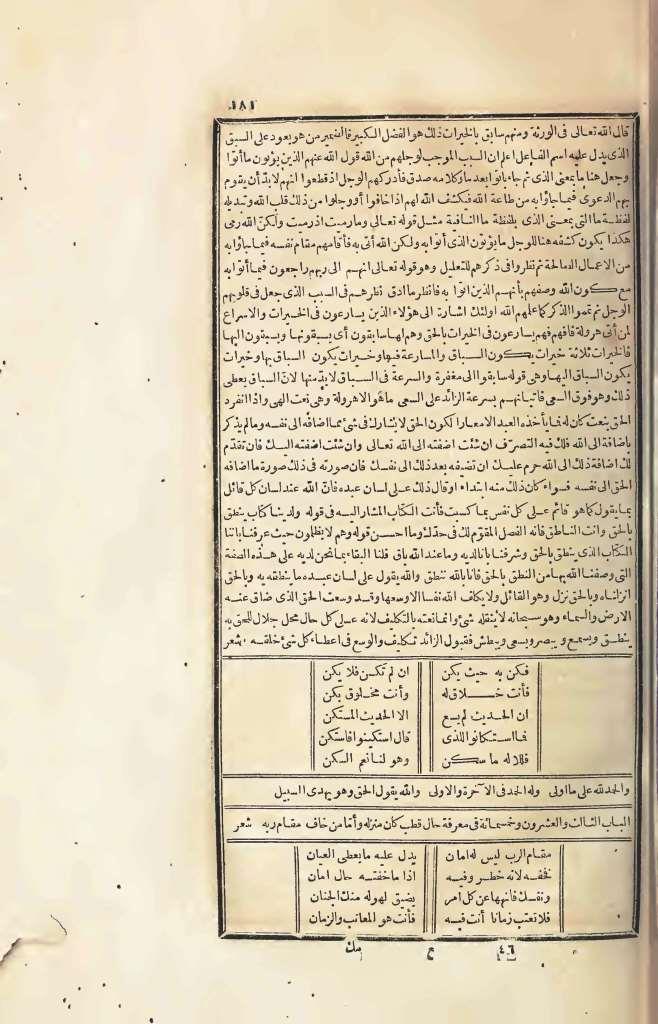 ١٨١
قال الله تعالى في الورثة ومنهم سابق بالخيرات ذلك هو الفضل الكبير فالضمير من هو يعود على السبق
الذي يدل عليه اسم الفاعل اعلم ان السبب الموجب لوجلهم من الله قول الله عنهم الذين يؤتون ما آتوا
وجعل هنا ما بمعنى الذي ثم جاء بآتوا بعد ما وكلامه صدق فأدركهم الوجل اذ قطعوا انهم لا بد أن يقوم
بهم الدعوى فيما جاؤا به من طاعة الله فيكشف الله لهم اذا خافوا أو وجلوا من ذلك قلب الله وتبديله
لفظة ما التي بمعنى الذي بلفظة ما النافية مثل قوله تعالى وما رميت اذ رميت ولكن الله رمى
هكذا يكون كشفه هنا للوجل ما يؤتون الذي أتوا به ولكن الله أتى به فأقامهم مقام نفسه فيما جاؤا به
من الاعمال الصالحة ثم نظروا في ذكرهم للتعليل وهو قوله تعالى انهم الى ربهم راجعون فيما أتوا به
مع كون الله وصفهم بأنهم الذين أتوا به فانظر ما أدق نظرهم في السبب الذي جعل في قلوبهم
الوجل ثم تمموا الذكر كما علمهم الله اولئك اشارة الى هؤلاء الذين يسارعون في الخيرات والاسراع
لمن أتى هرولة فافهم فهم يسارعون في الخيرات بالحق وهم لها سابقون أي يسبقونها ويسبقون اليها
فالخيرات ثلاثة خيرات يكون السباق والمسارعة فيها وخيرات يكون السباق بها وخيرات
يكون السباق اليها وهي قوله سابقوا الى مغفرة والسرعة في السباق لا بد منها لان السباق يعطي
ذلك وهو فوق السعي فاتيانهم بسرعة الزائد على السعي ما هو الا هرولة وهي نعت الهي واذا انفرد
الحق بنعت كان له فما يأخذه العبد الا معارا لكون الحق لا يشارك في شئ مما اضافه الى نفسه وما لم يذكر
باضافة الى الله فلك فيه التصرف ان شئت اضفته الى الله تعالى وان شئت اضفته اليك فان تقدم
لك اضافة ذلك الى الله حرم عليك ان تضيفه بعد ذلك الى نفسك فان صورته في ذلك صورة ما اضافه
الحق الى نفسه فسواء كان ذلك منه ابتداء او قال ذلك على لسان عبده فان الله عند لسان كل قائل
بما يقول كما هو قائم على كل نفس بما كسبت فأنت الكتاب المشار اليه في قوله ولدينا كتاب ينطق
بالحق وانت الناطق فانه الفصل المقوم لك في حدك وما احسن قوله وهم لا يظلمون حيث عرفنا باننا
الكتاب الذي ينطق بالحق وشرفنا بانا لديه وما عند الله باق فلنا البقاء بما نحن لديه على هذه الصفة
التي وصفنا الله بها من النطق بالحق فانا بالله ننطق والله يقول على لسان عبده ما ينطقه به وبالحق
انزلناه وبالحق نزل وهو القائل ولا يكلف الله نفسا الا وسعها وقد وسعت الحق الذي ضاق عنه
الارض والسماء وهو سبحانه لا يثقله شئ وانما نعته بالتكليف لانه على كل حال محل جلال للحق به
ينطق ويسمع ويبصر ويسعى ويبطش فقبول الزائد تكليف والوسع في اعطاء كل شئ خلقه شعر
فكن به حيث يكن ان لم تكن فلا يكن
فأنت خلاق له وأنت مخلوق يكن
ان الحديث لم يسع الا الحديث المستكن
فما استكانوا للذي قال استكينوا فاستكن
فلاله ما سكن وهو لنا نعم السكن
والحمد لله على ما اولى وله الحمد في الآخرة والاولى والله يقول الحق وهو يهدي السبيل
الباب الثالث والعشرون وخمسمائة في معرفة حال قطب كان منزله وأما من خاف مقام ربه شعر
مقام الرب ليس له امان يدل عليه ما يعطي العيان
فخفه لانه خطر وفيه اذا ما خفته حال امان
ونفسك فانهها عن كل امر يضيق لهوله منك الجنان
فلا تعتب زمانا أنت فيه فأنت هو المعاتب والزمان
٤٦ ح مك